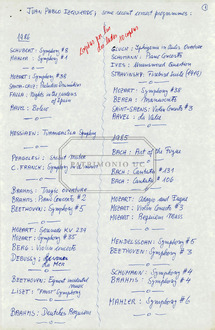 - JUAN PABLO IZQUIERDO; some recent concert programmes:
1
1986
SCHUBERT: Symphony # 8
MAHLER: Symphony # 4
MOZART: Symphony # 38
FALLA: Nights in the gardens
of Spain
RAVEL: Bolero
MESSIAEN: Turangalila Symphony
C. FRANCK: Symphony in d minor
BRAHMS: Tragic overture
BRAHMS: Piano Concerto # 2
BEETHOVEN: Symphony # 5
MOZART: Serenade KV 239
MOZART: Symphony # 35
BERG: Violin concerto
DEBUSSY:
La Mer
BEETHOVEN: Egmont
LISZT: Faust Symphony
BRAHMS: Deutsches Requiem
GLUCK: Iphigenia in Aulis, Overture
SCHUMANN: Piano Concerto
IVES: Unanswered Question
STRAWINSKY: Firebird Suite (1919)
MOZART: Symphony # 38
SAINT-SAENS: Violin Concerto # 3
RAVEL: La Valse
1985
BACH: Art of the Fugue
BACH: Cantata # 131
BACH: Cantata # 106
PATRIMONIO UC
MOZART: Adagio and Fugue
MOZART: Violin Concerto # 3
MOZART: Requiem Mass
MENDELSSOHN: Symphony # 5
BEETHOVEN: Symphony # 3
SCHUMANN: Symphony # 4
BRAHMS: Symphony # 4
MAHLER: Symphony # 6